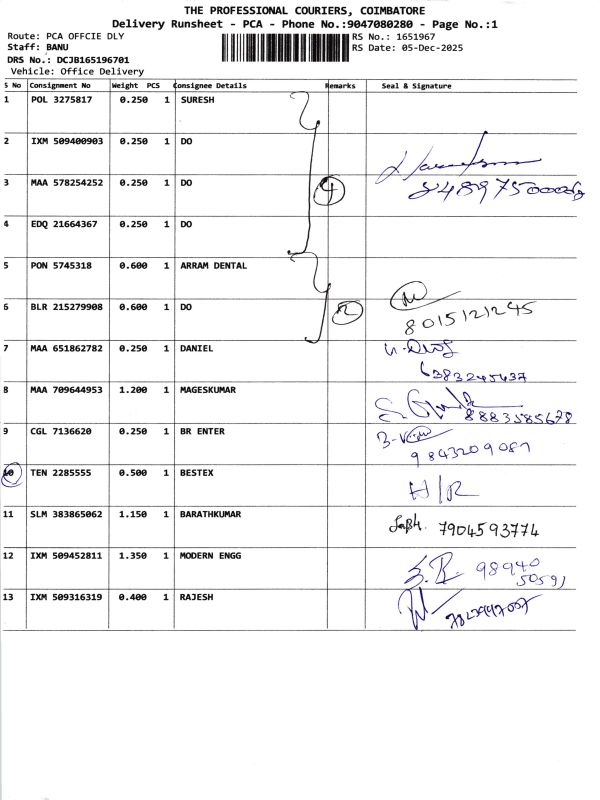 THE PROFESSIONAL COURIERS, COIMBATORE
Delivery Runsheet - PCA - Phone No.:9047080280 - Page No.:1
Route: PCA OFFCIE DLY
RS No.: 1651967
Staff: BANU
RS Date: 05-Dec-2025
DRS No.: DCJB165196701
Vehicle: Office Delivery
S No Consignment No Weight PCS Consignee Details Remarks Seal & Signature
1 POL 3275817 0.250 1 SURESH
2 IXM 509400903 0.250 1 DO
3 MAA 578254252 0.250 1 DO 4
4 EDQ 21664367 0.250 1 DO
5 PON 5745318 0.600 1 ARRAM DENTAL
6 BLR 215279908 0.600 1 DO 2 8015121245
7 MAA 651862782 0.250 1 DANIEL
6383245437
8 MAA 709644953 1.200 1 MAGESKUMAR 8883585678
9 CGL 7136620 0.250 1 BR ENTER
9843209087
10 TEN 2285555 0.500 1 BESTEX H/R
11 SLM 383865062 1.150 1 BARATHKUMAR 7904593774
12 IXM 509452811 1.350 1 MODERN ENGG 98940
50591
13 IXM 509316319 0.400 1 RAJESH